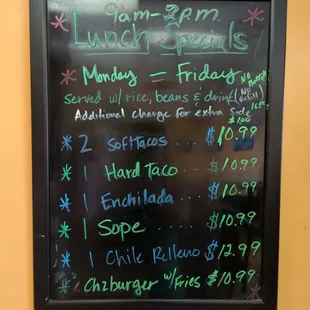 9am-2p.m.
Lunch Specials
Monday = Friday No
served w/ rice, beans & drink (No refill)
Additional charge for extra Side
$1.00
* 2 Soft tacos ... $10.99
* 1 Hard Taco ... $10.99
* 1 Enchilada .... $10.99
* 1 Sope ...... $10.99
* 1 Chile Relleno $12.99
* Chzburger w/ Fries $10.99